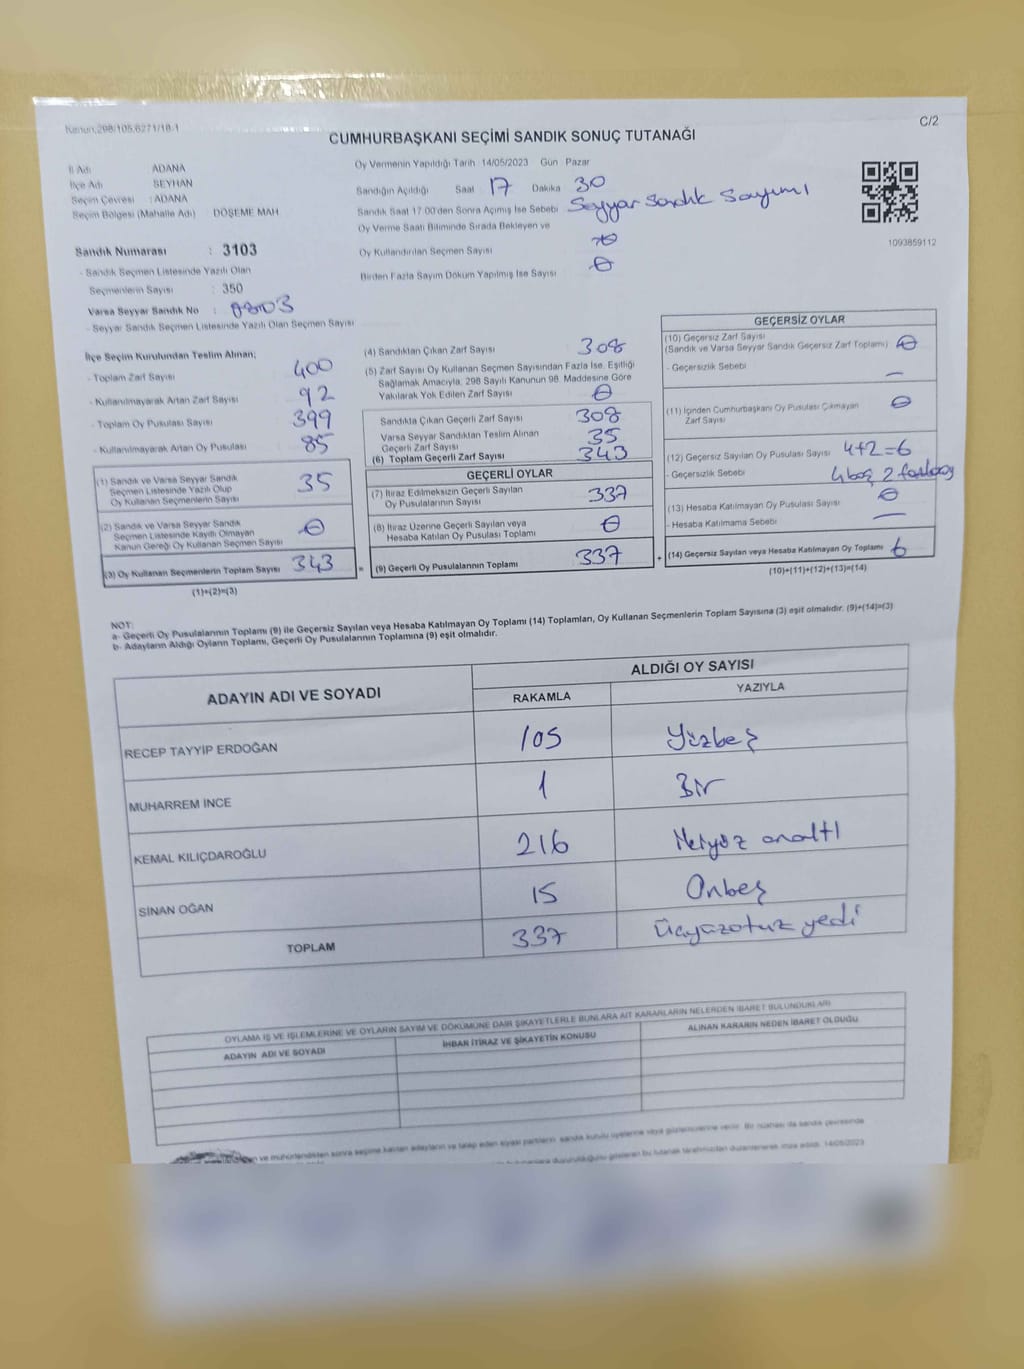 Kanun.298/105,6271/18-1
C/2
CUMHURBAŞKANI SEÇİMİ SANDIK SONUÇ TUTANAĞI
İl Adı ADANA
İlçe Adı SEYHAN
Seçim Çevresi : ADANA
Seçim Bölgesi (Mahalle Adı) DÖŞEME MAH
Oy Vermenin Yapıldığı Tarih 14/05/2023 Gün Pazar
Sandığın Açıldığı Saat 17 Dakika 30
Sandık Saat 17 00'den Sonra Açımış İse Sebebi Seyyar Sandık Sayımı
Oy Verme Saati Bitiminde Sırada Bekleyen ve
Oy Kullandırılan Seçmen Sayısı 0
Birden Fazla Sayım Döküm Yapılmış İse Sayısı 0
1093859112
Sandık Numarası : 3103
- Sandık Seçmen Listesinde Yazılı Olan
Seçmenlerin Sayısı : 350
Varsa Seyyar Sandık No :
- Seyyar Sandık Seçmen Listesinde Yazılı Olan Seçmen Sayısı
İlçe Seçim Kurulundan Teslim Alınan;
- Toplam Zarf Sayısı 400
- Kullanılmayarak Artan Zarf Sayısı 92
- Toplam Oy Pusulası Sayısı 399
- Kullanılmayarak Artan Oy Pusulası 85
(1) Sandık ve Varsa Seyyar Sandık
Seçmen Listesinde Yazılı Olup
Oy Kullanan Seçmenlerin Sayısı 35
(2) Sandık ve Varsa Seyyar Sandık
Seçmen Listesinde Kayıtlı Olmayan
Kanun Gereği Oy Kullanan Seçmen Sayısı 0
(3) Oy Kullanan Seçmenlerin Toplam Sayısı 343
(1)+(2)=(3)
(4) Sandıktan Çıkan Zarf Sayısı 308
(5) Zarf Sayısı Oy Kullanan Seçmen Sayısından Fazla İse, Eşitliği
Sağlamak Amacıyla, 298 Sayılı Kanunun 98. Maddesine Göre
Yakılarak Yok Edilen Zarf Sayısı 0
Sandıkta Çıkan Geçerli Zarf Sayısı 308
Varsa Seyyar Sandıktan Teslim Alınan
Geçerli Zarf Sayısı 35
(6) Toplam Geçerli Zarf Sayısı 343
GEÇERLİ OYLAR
(7) İtiraz Edilmeksizin Geçerli Sayılan
Oy Pusulalarının Sayısı 337
(8) İtiraz Üzerine Geçerli Sayılan veya
Hesaba Katılan Oy Pusulası Toplamı 0
= (9) Geçerli Oy Pusulalarının Toplamı 337
GEÇERSİZ OYLAR
(10) Geçersiz Zarf Sayısı
(Sandık ve Varsa Seyyar Sandık Geçersiz Zarf Toplamı) 0
- Geçersizlik Sebebi —
(11) İçinden Cumhurbaşkanı Oy Pusulası Çıkmayan
Zarf Sayısı 0
(12) Geçersiz Sayılan Oy Pusulası Sayısı 4+2=6
- Geçersizlik Sebebi 4 boş 2 fazla oy
(13) Hesaba Katılmayan Oy Pusulası Sayısı 0
- Hesaba Katılmama Sebebi —
+ (14) Geçersiz Sayılan veya Hesaba Katılmayan Oy Toplamı 6
(10)+(11)+(12)+(13)=(14)
NOT:
a- Geçerli Oy Pusulalarının Toplamı (9) ile Geçersiz Sayılan veya Hesaba Katılmayan Oy Toplamı (14) Toplamları, Oy Kullanan Seçmenlerin Toplam Sayısına (3) eşit olmalıdır. (9)+(14)=(3)
b- Adayların Aldığı Oyların Toplamı, Geçerli Oy Pusulalarının Toplamına (9) eşit olmalıdır.
ADAYIN ADI VE SOYADI
ALDIĞI OY SAYISI
RAKAMLA YAZIYLA
RECEP TAYYİP ERDOĞAN 105 Yüzbeş
MUHARREM İNCE 1 Bir
KEMAL KILIÇDAROĞLU 216 onaltı
SİNAN OĞAN 15 Onbeş
TOPLAM 337 Üçyüzotuz yedi
OYLAMA İŞ VE İŞLEMLERİNE VE OYLARIN SAYIM VE DÖKÜMÜNE DAİR ŞİKAYETLERLE BUNLARA AİT KARARLARIN NELERDEN İBARET BULUNDUKLARI
ADAYIN ADI VE SOYADI İHBAR İTİRAZ VE ŞİKAYETİN KONUSU ALINAN KARARIN NEDEN İBARET OLDUĞU